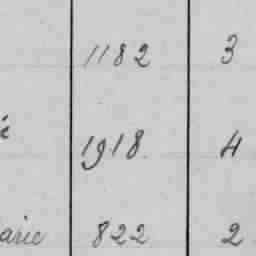 1182 3
1918. 4
arie 822 2